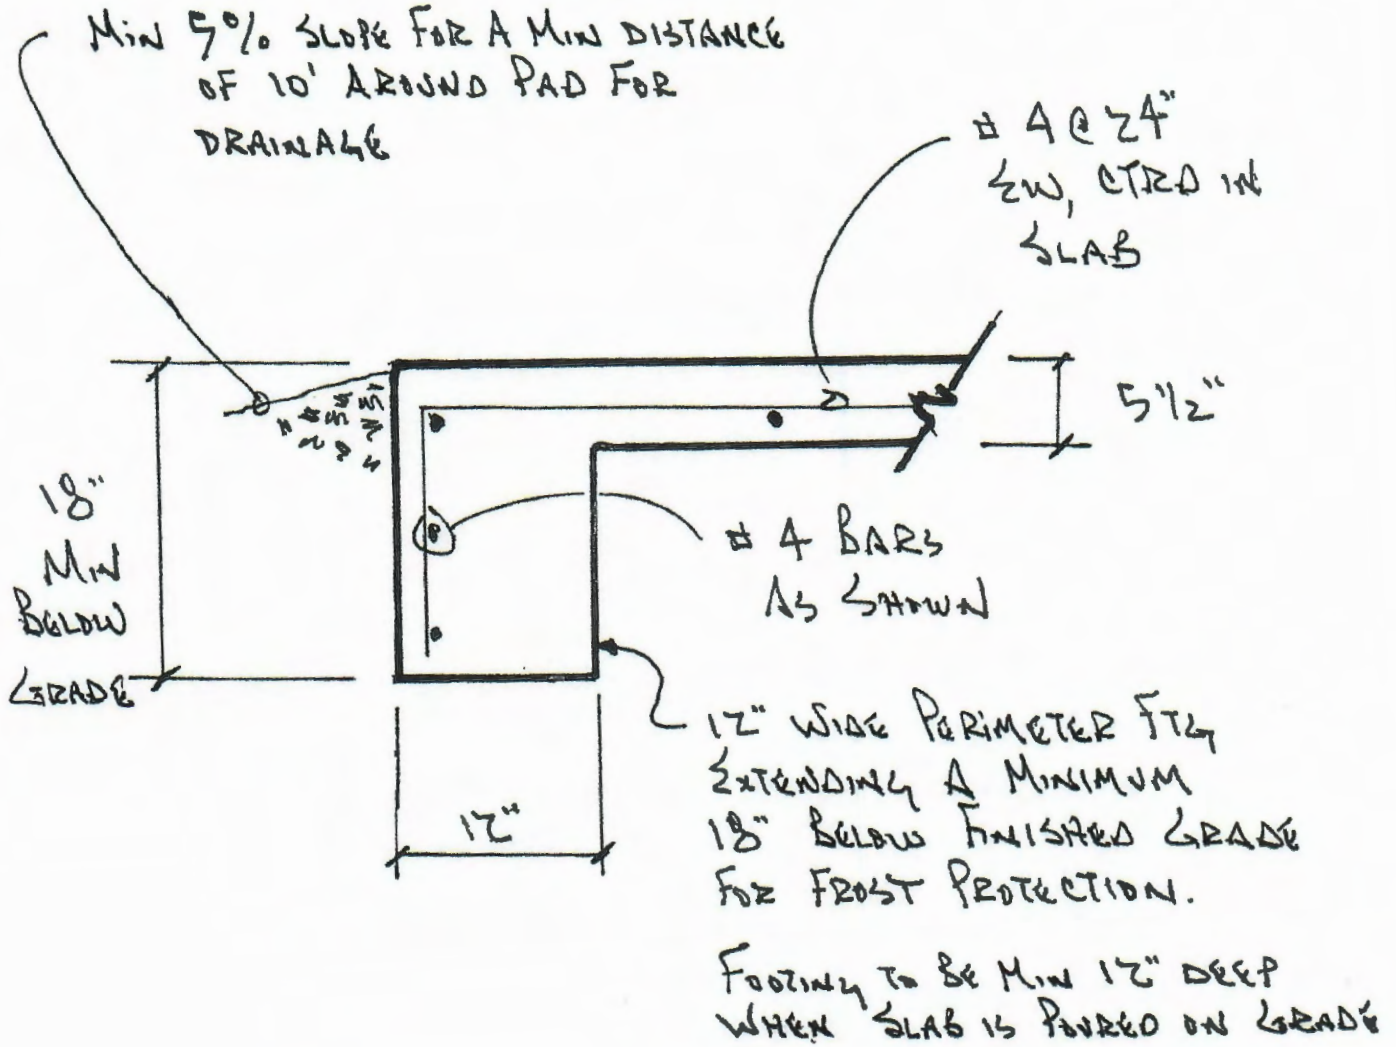 MIN 5% SLOPE FOR A MIN DISTANCE
OF 10' AROUND PAD FOR
DRAINAGE
# 4 @ 24"
EW, CTRD IN
SLAB
5 1/2"
18"
MIN
BELOW
GRADE
# 4 BARS
AS SHOWN
12"
12" WIDE PERIMETER FTG
EXTENDING A MINIMUM
18" BELOW FINISHED GRADE
FOR FROST PROTECTION.
FOOTING TO BE MIN 12" DEEP
WHEN SLAB IS POURED ON GRADE